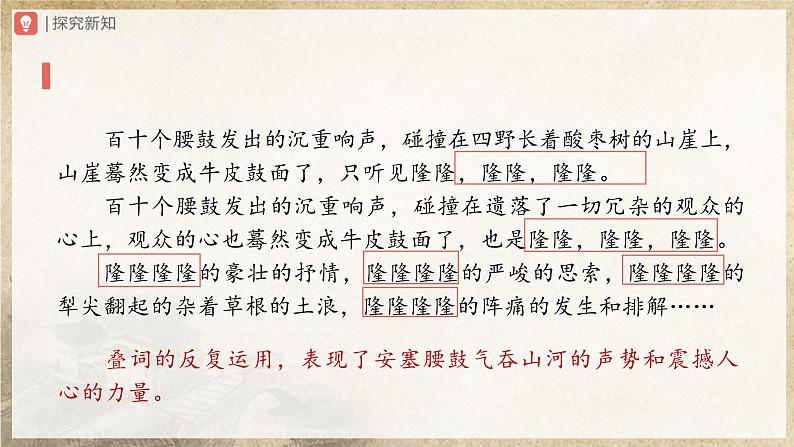 探究新知
百十个腰鼓发出的沉重响声，碰撞在四野长着酸枣树的山崖上，
山崖蓦然变成牛皮鼓面了，只听见隆隆，隆隆，隆隆。
百十个腰鼓发出的沉重响声，碰撞在遗落了一切冗杂的观众的
心上，观众的心也蓦然变成牛皮鼓面了，也是隆隆，隆隆，隆隆。
隆隆隆隆的豪壮的抒情，隆隆隆隆的严峻的思索，隆隆隆隆的
犁尖翻起的杂着草根的土浪，隆隆隆隆的阵痛的发生和排解……
叠词的反复运用，表现了安塞腰鼓气吞山河的声势和震撼人
心的力量。